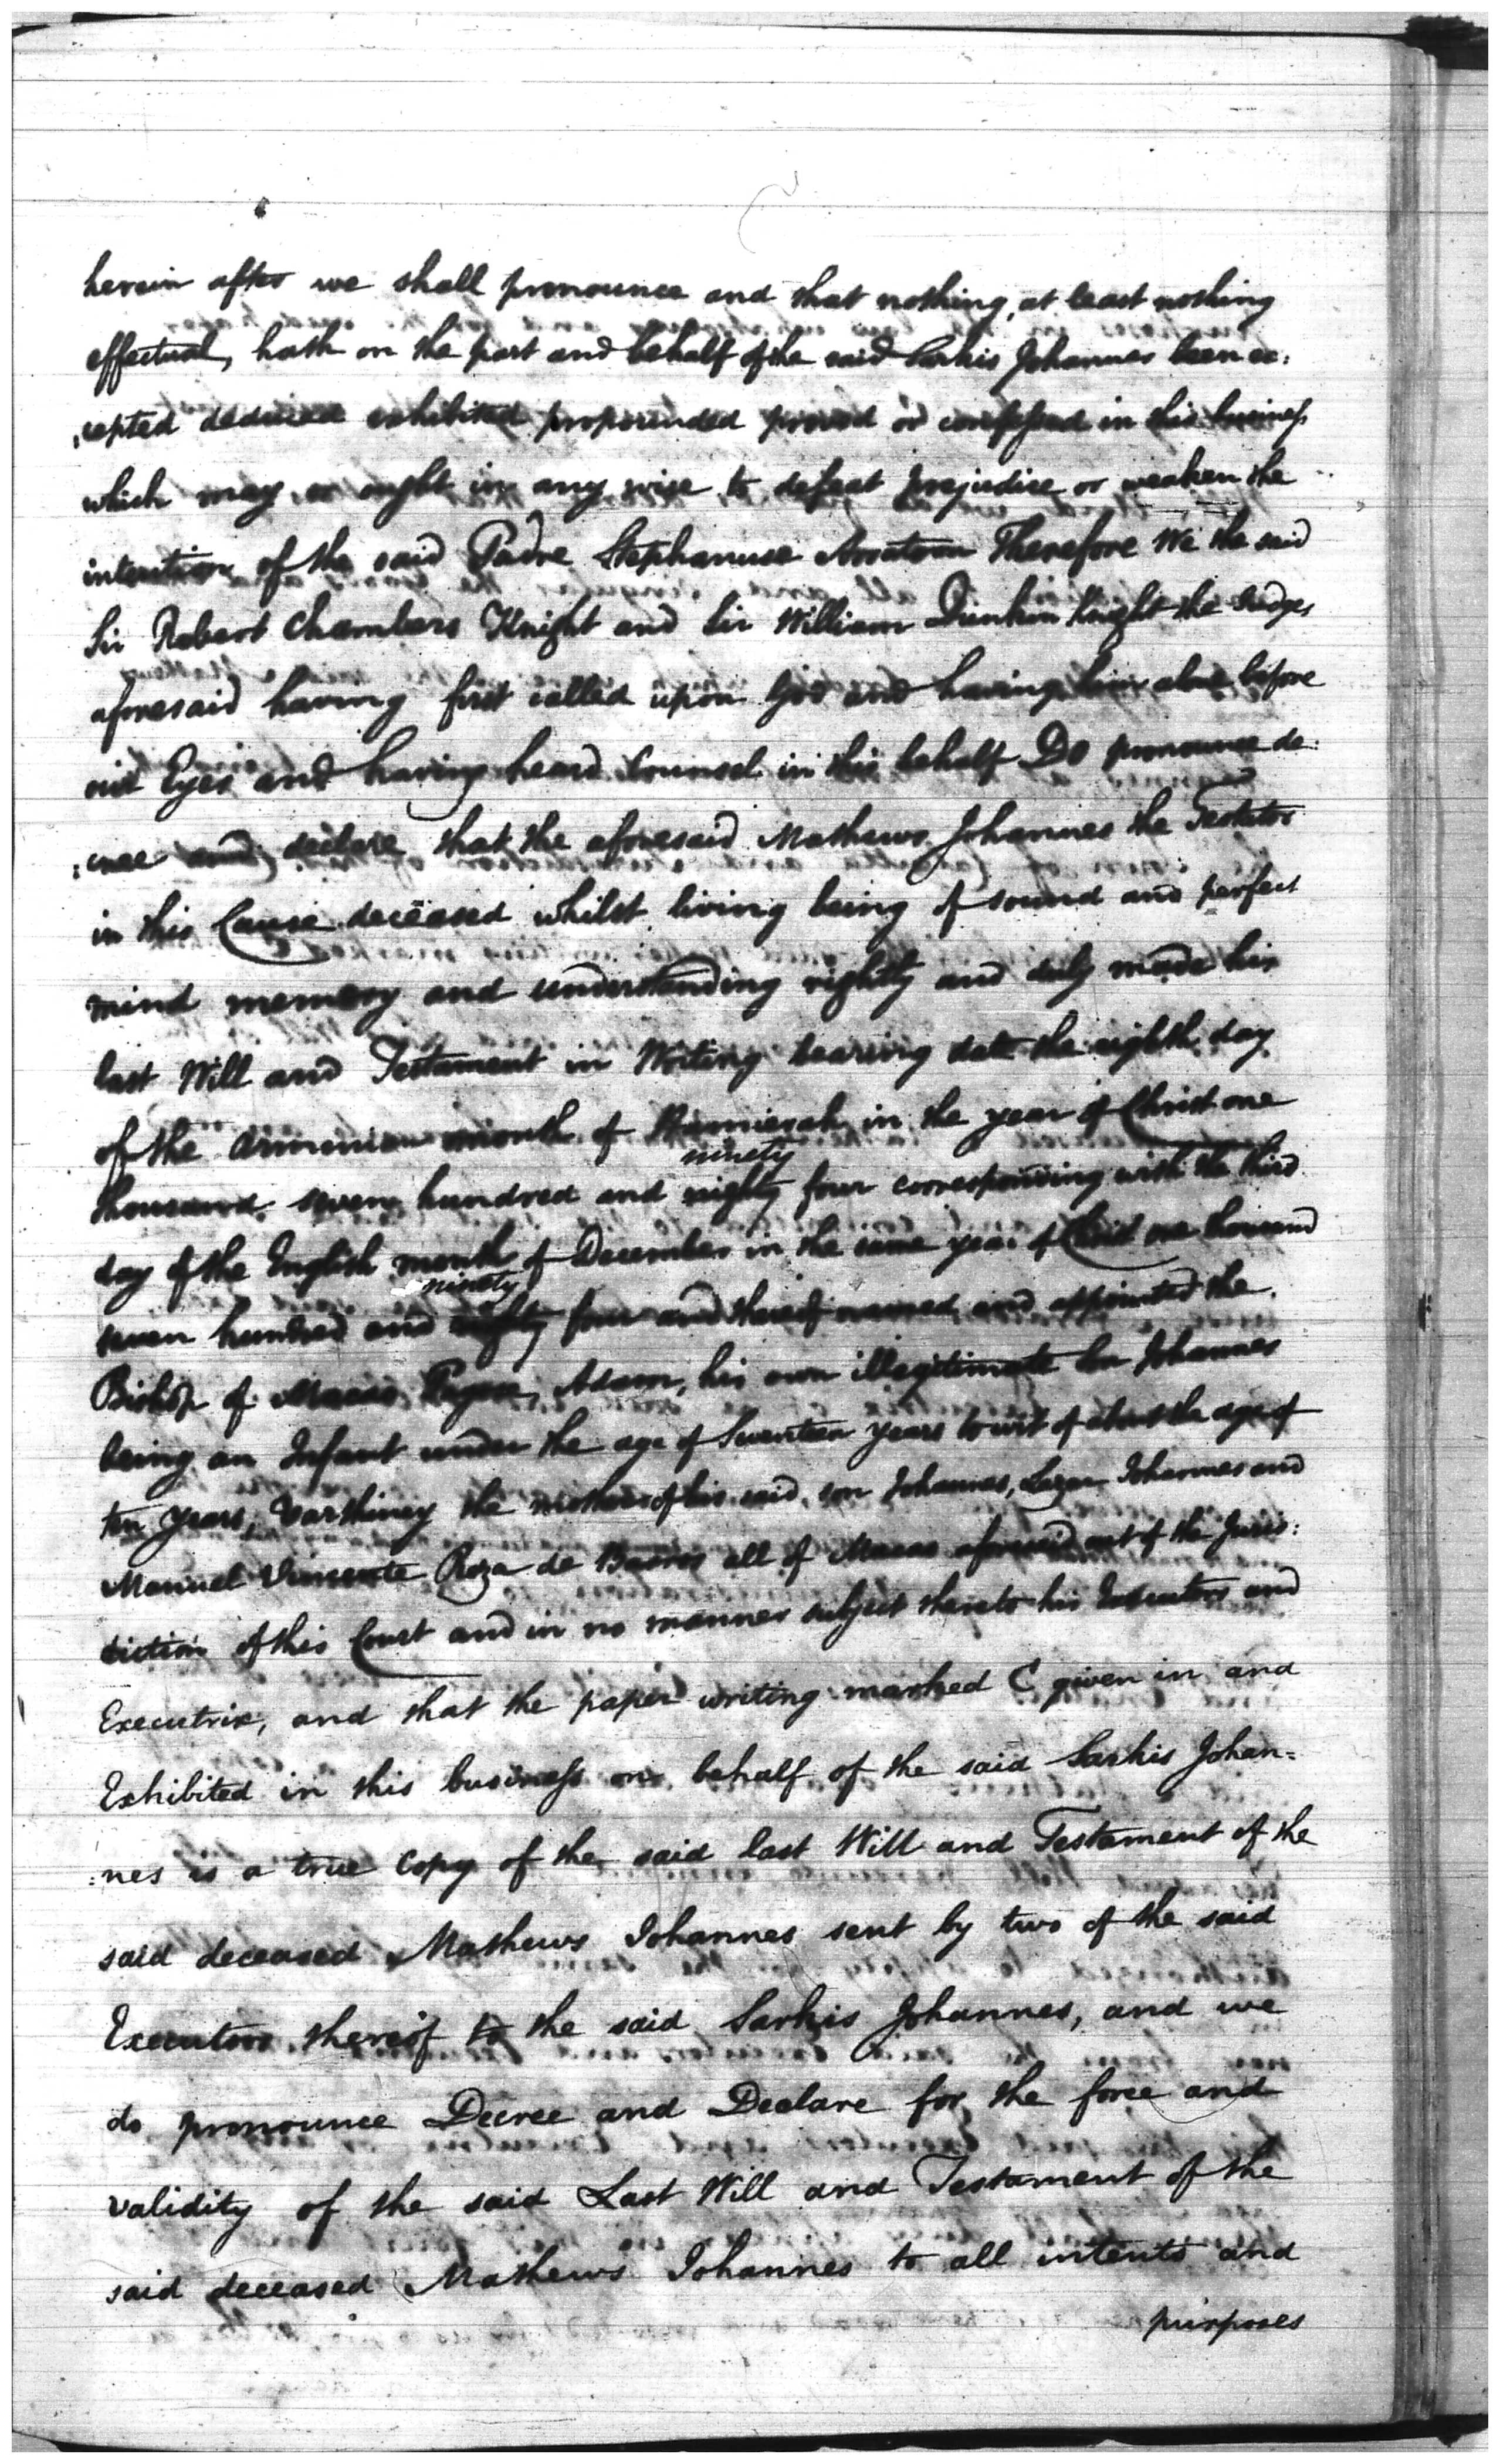 herein after we shall pronounce and that nothing, at least nothing
effectual, hath on the part and behalf of the said Sarkis Johannes been ex:
:cepted deduced exhibited propounded proved or confessed in this business
which may or ought in any wise to defeat prejudice or weaken the
intention of the said Padre Stephanuse Arratoon Therefore We the said
Sir Robert Chambers Knight and Sir William Dunkin Knight the Judges
aforesaid having first called upon God and having him alone before
our Eyes and having heard Counsel in this behalf Do pronounce de:
:cree and declare that the aforesaid Mathews Johannes the Testator
in this Cause deceased whilst living being of sound and perfect
mind memory and understanding rightly and duly made his
last Will and Testament in Writing bearing date the eighth day
of the Armenian month of in the year of Christ one
ninety
thousand seven hundred and eighty four corresponding with the third
day of the English month of December in the same year of Christ one thousand
ninety
seven hundred and eighty four and thereof named and appointed the
Bishop of Macao, Adam, his own illegitimate Son Johannes
being an Infant under the age of Seventeen years to wit of about the age of
ten years, Varthiney the mother of his said son Johannes, Lazar Johannes and
Manuel Vincente Roza de Barros all of Macao aforesaid out of the Juris:
diction of this Court and in no manner subject thereto his Executors and
Executrix, and that the paper writing marked C given in and
Exhibited in this business on behalf of the said Sarkis Johan=
:nes is a true Copy of the said last Will and Testament of the
said deceased Mathews Johannes sent by two of the said
Executors thereof to the said Sarkis Johannes, and we
do pronounce Decree and Declare for the force and
validity of the said Last Will and Testament of the
said deceased Mathews Johannes to all intents and
purposes